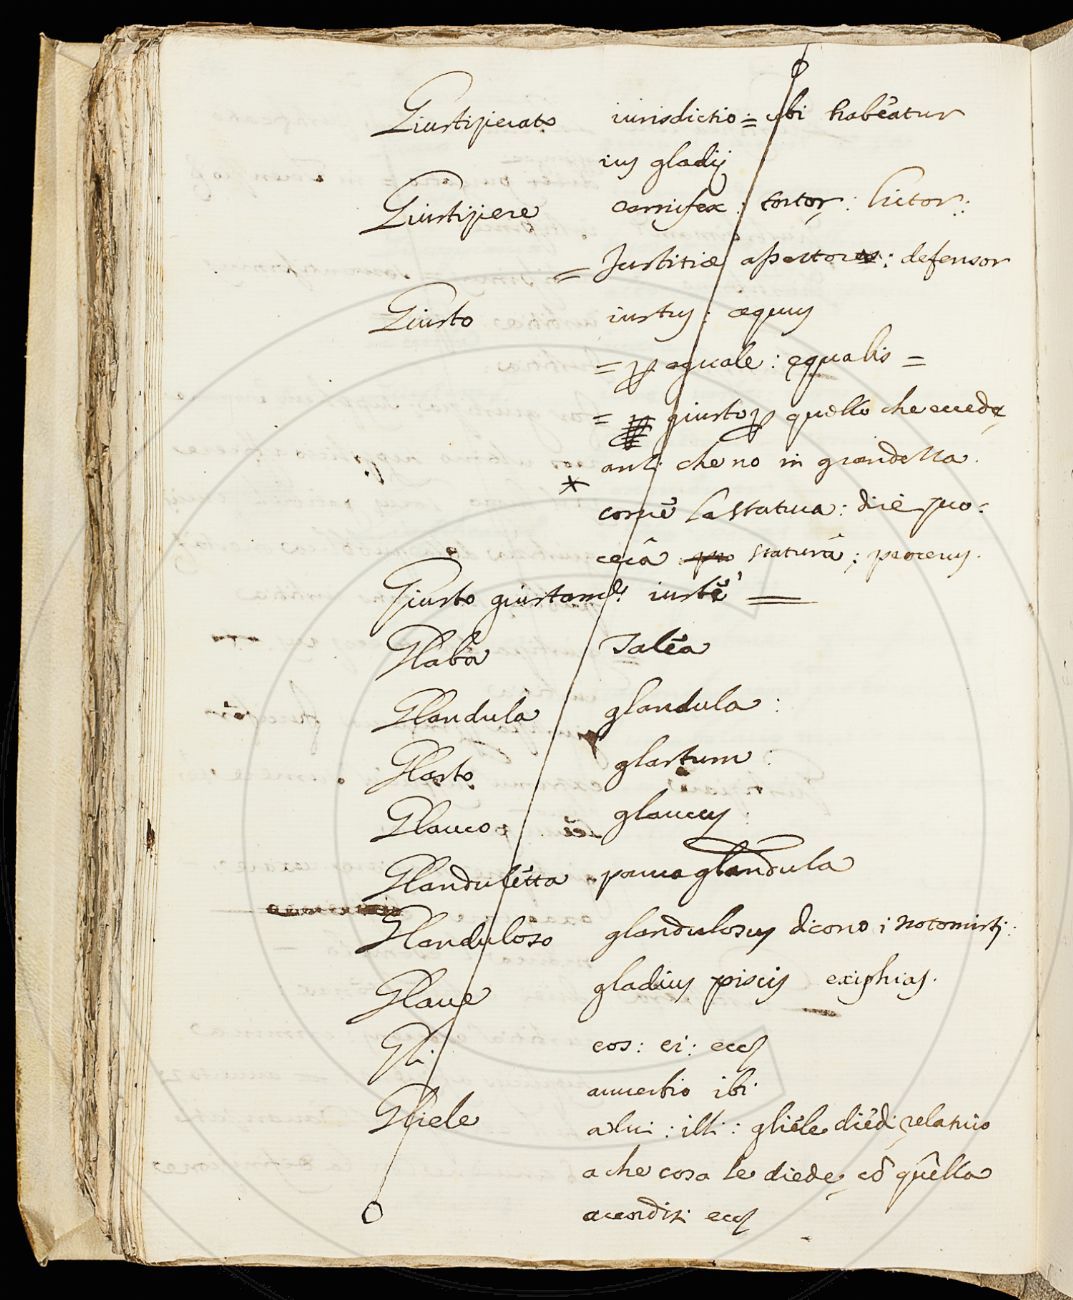 Giustizierato iurisdictio = ubi habeatur
ius gladij
Giustiziere carnifex : tortor : lictor :
= Justitiæ assertor : defensor
Giusto iustus : æquus
= p eguale : equalis =
= giusto p quello che eccede
anzi che no in grandezza
* come la statua :
statura : procerus .
Giusto giustamte iustè
Glaba Talea
Glandula glandula :
Glasto glastum :
Glauco glaucus :
Glanduletta parua glandula
Glanduloso glandulosus dicono i notomisti :
Glaue gladius piscis exiphias .
Gli eos : ei : ecc
auuerbio ibi
Gliele a lui : illi : gliele diedi relatiuo
a che cosa le diede, cõ quella
ecc